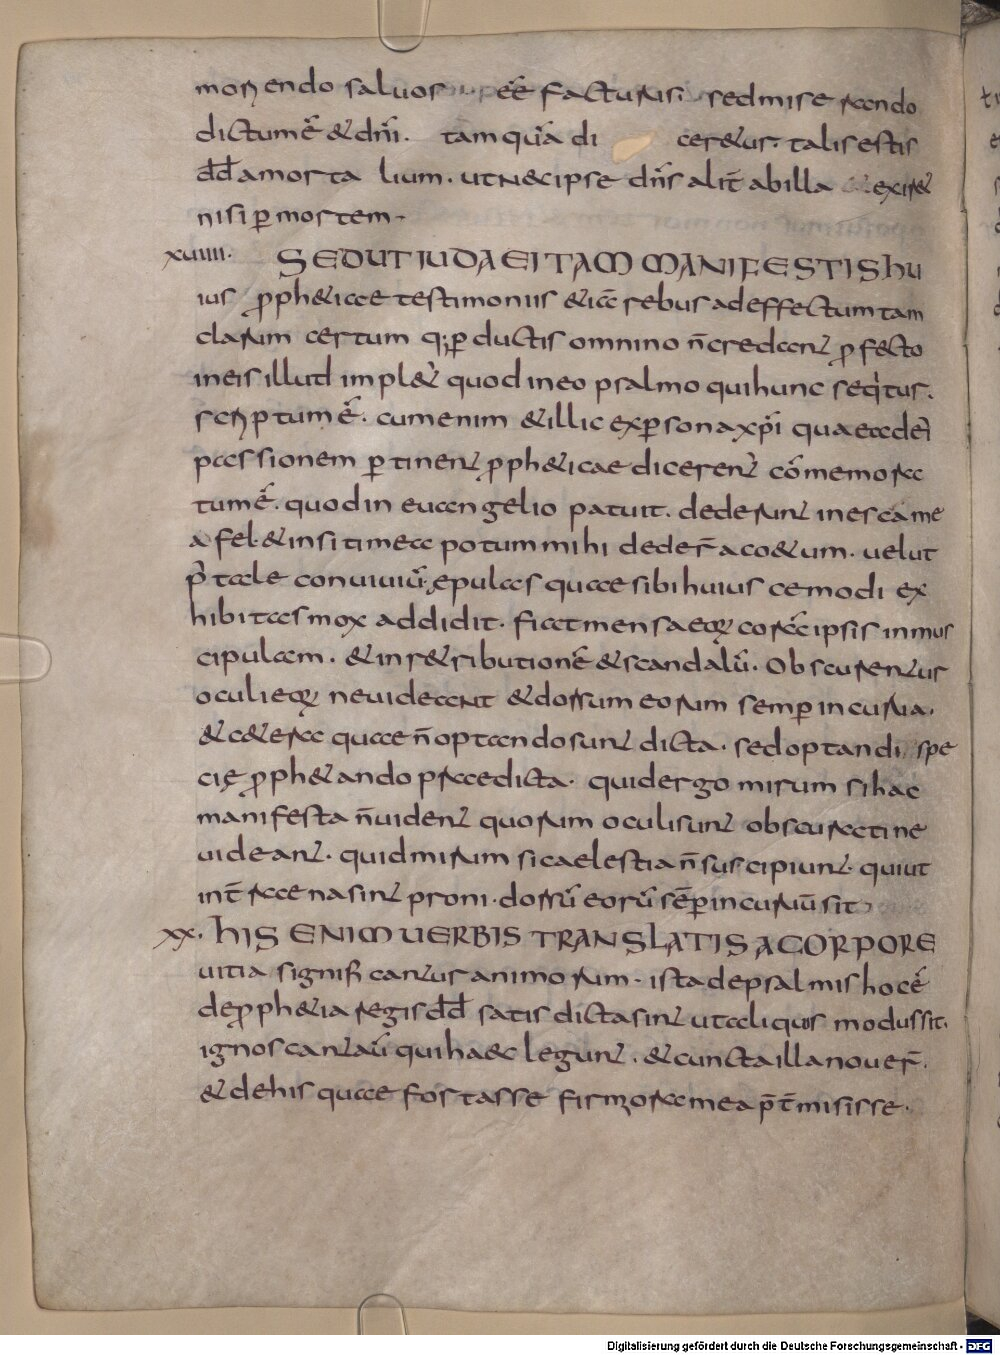 moriendo saluos eẽ facturus. sed miserando
dictum ẽ & dñi. tamquã di ceretur. talis est is
dd a morta lium. ut nec ipse dñs alit̃ ab illa exir&
nisi p̱ mortem.
xuiiii. SED UT IUDAEI TAM MANIFESTIS HU
ius ꝓph&icae testimoniis &iã rebus ad effectum tam
clarum certum q; p̱ductis omnino ñ credant ꝓfecto
in eis illud impl&ur quod in eo psalmo qui hunc seqitur.
scriptum ẽ. cum enim & illic ex p̱sona xp̃i quae ad eĩ
passionem p̱tinent ꝓph&icae dicerent͛ cõmemora
tum ẽ. quod in euangelio patuit. dederunt in escam me
a fel. & in siti mea potum mihi deder̃ aco&um. uelut
p̃ tale conuiuiũ. epulas quae sibi huiusce modi ex
hibitas mox addidit. fiat mensa eoꝝ corã ipsis in mus
cipulam. & in r&ributionẽ & scandalũ. Obscurentur
oculi eoꝝ ne uideant & dorsum eorum semp̱ incurua.
& c&era quae ñ optando sunt dicta. sed optandi spe
cię ꝓph&ando praedicta. quid ergo mirum si hac
manifesta ñ uident quorum oculi sunt obscurati ne
uideant. quid mirum si caelestia ñ suscipiunt. qui ut
int̃rena sint proni. dorsũ eorũ sẽp̱ incuruũ sit
xx. HIS ENIM UERBIS TRANSLATIS A CORPORE
uitia significantur animorum. ista de psalmis hoc ẽ
de ꝓph&ia regis dd satis dicta sint ut aliquos modus sit.
ignoscant aũ qui haec legunt. & cuncta illa nouer̃.
& de his quae fortasse firmiora me a p̃t̃misisse.
Digitalisierung gefördert durch die Deutsche Forschungsgemeinschaft - DFG